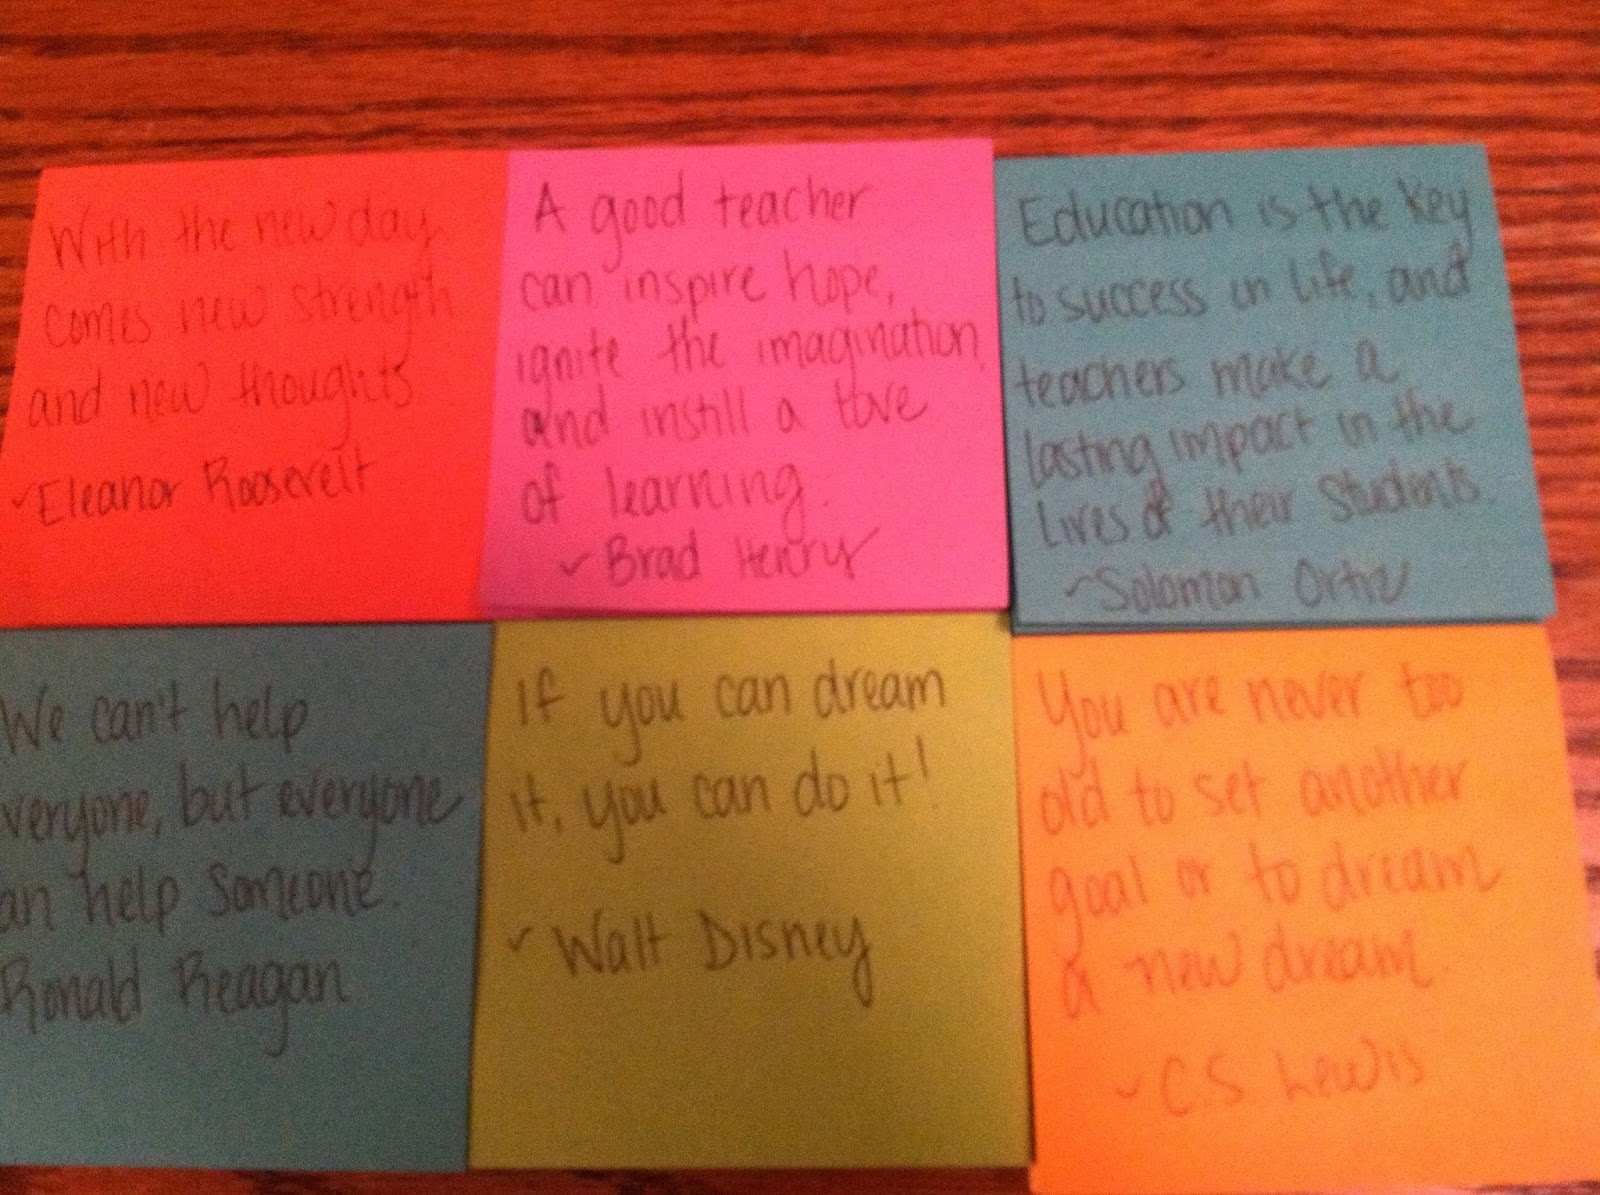 With the new day
comes new strength
and new thoughts
~Eleanor Roosevelt
A good teacher
can inspire hope,
ignite the imagination,
and instill a love
of learning.
~Brad Henry
Education is the key
to success in life, and
teachers make a
lasting impact in the
lives of their students.
~Solomon Ortiz
We can't help
veryone, but everyone
an help someone.
Ronald Reagan
If you can dream
it, you can do it!
~Walt Disney
You are never too
old to set another
goal or to dream
a new dream.
~C.S. Lewis